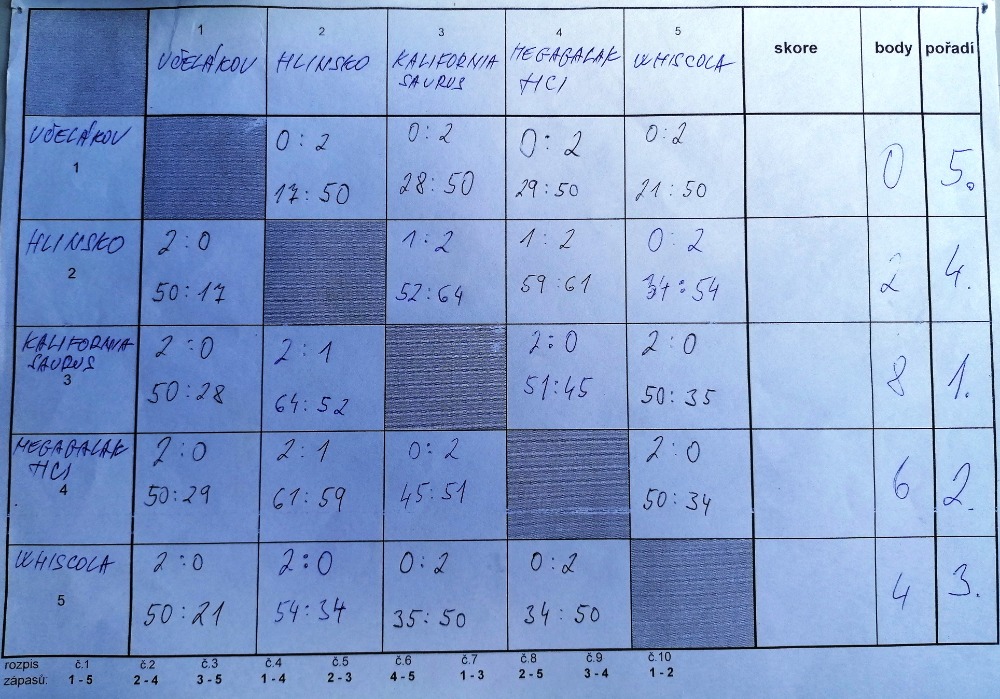 1 2 3 4 5 skore body pořadí
VČELÁKOV HLINSKO KALIFORNIA MEGAGALAK WHISCOLA
SAURUS TICI
VČELÁKOV 0:2 0:2 0:2 0:2 0 5.
1 17:50 28:50 29:50 21:50
HLINSKO 2:0 1:2 1:2 0:2 2 4.
2 50:17 52:64 59:61 34:54
KALIFORNIA 2:0 2:1 2:0 2:0 8 1.
SAURUS
3 50:28 64:52 51:45 50:35
MEGAGALAK 2:0 2:1 0:2 2:0 6 2.
TICI
4 50:29 61:59 45:51 50:34
WHISCOLA 2:0 2:0 0:2 0:2 4 3.
5 50:21 54:34 35:50 34:50
rozpis č.1 č.2 č.3 č.4 č.5 č.6 č.7 č.8 č.9 č.10
zápasů: 1 - 5 2 - 4 3 - 5 1 - 4 2 - 3 4 - 5 1 - 3 2 - 5 3 - 4 1 - 2